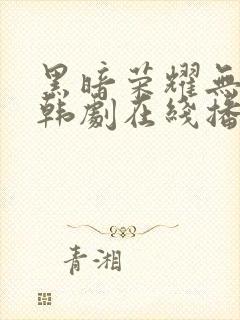 黑暗荣耀无
韩劇在綫播
青湘